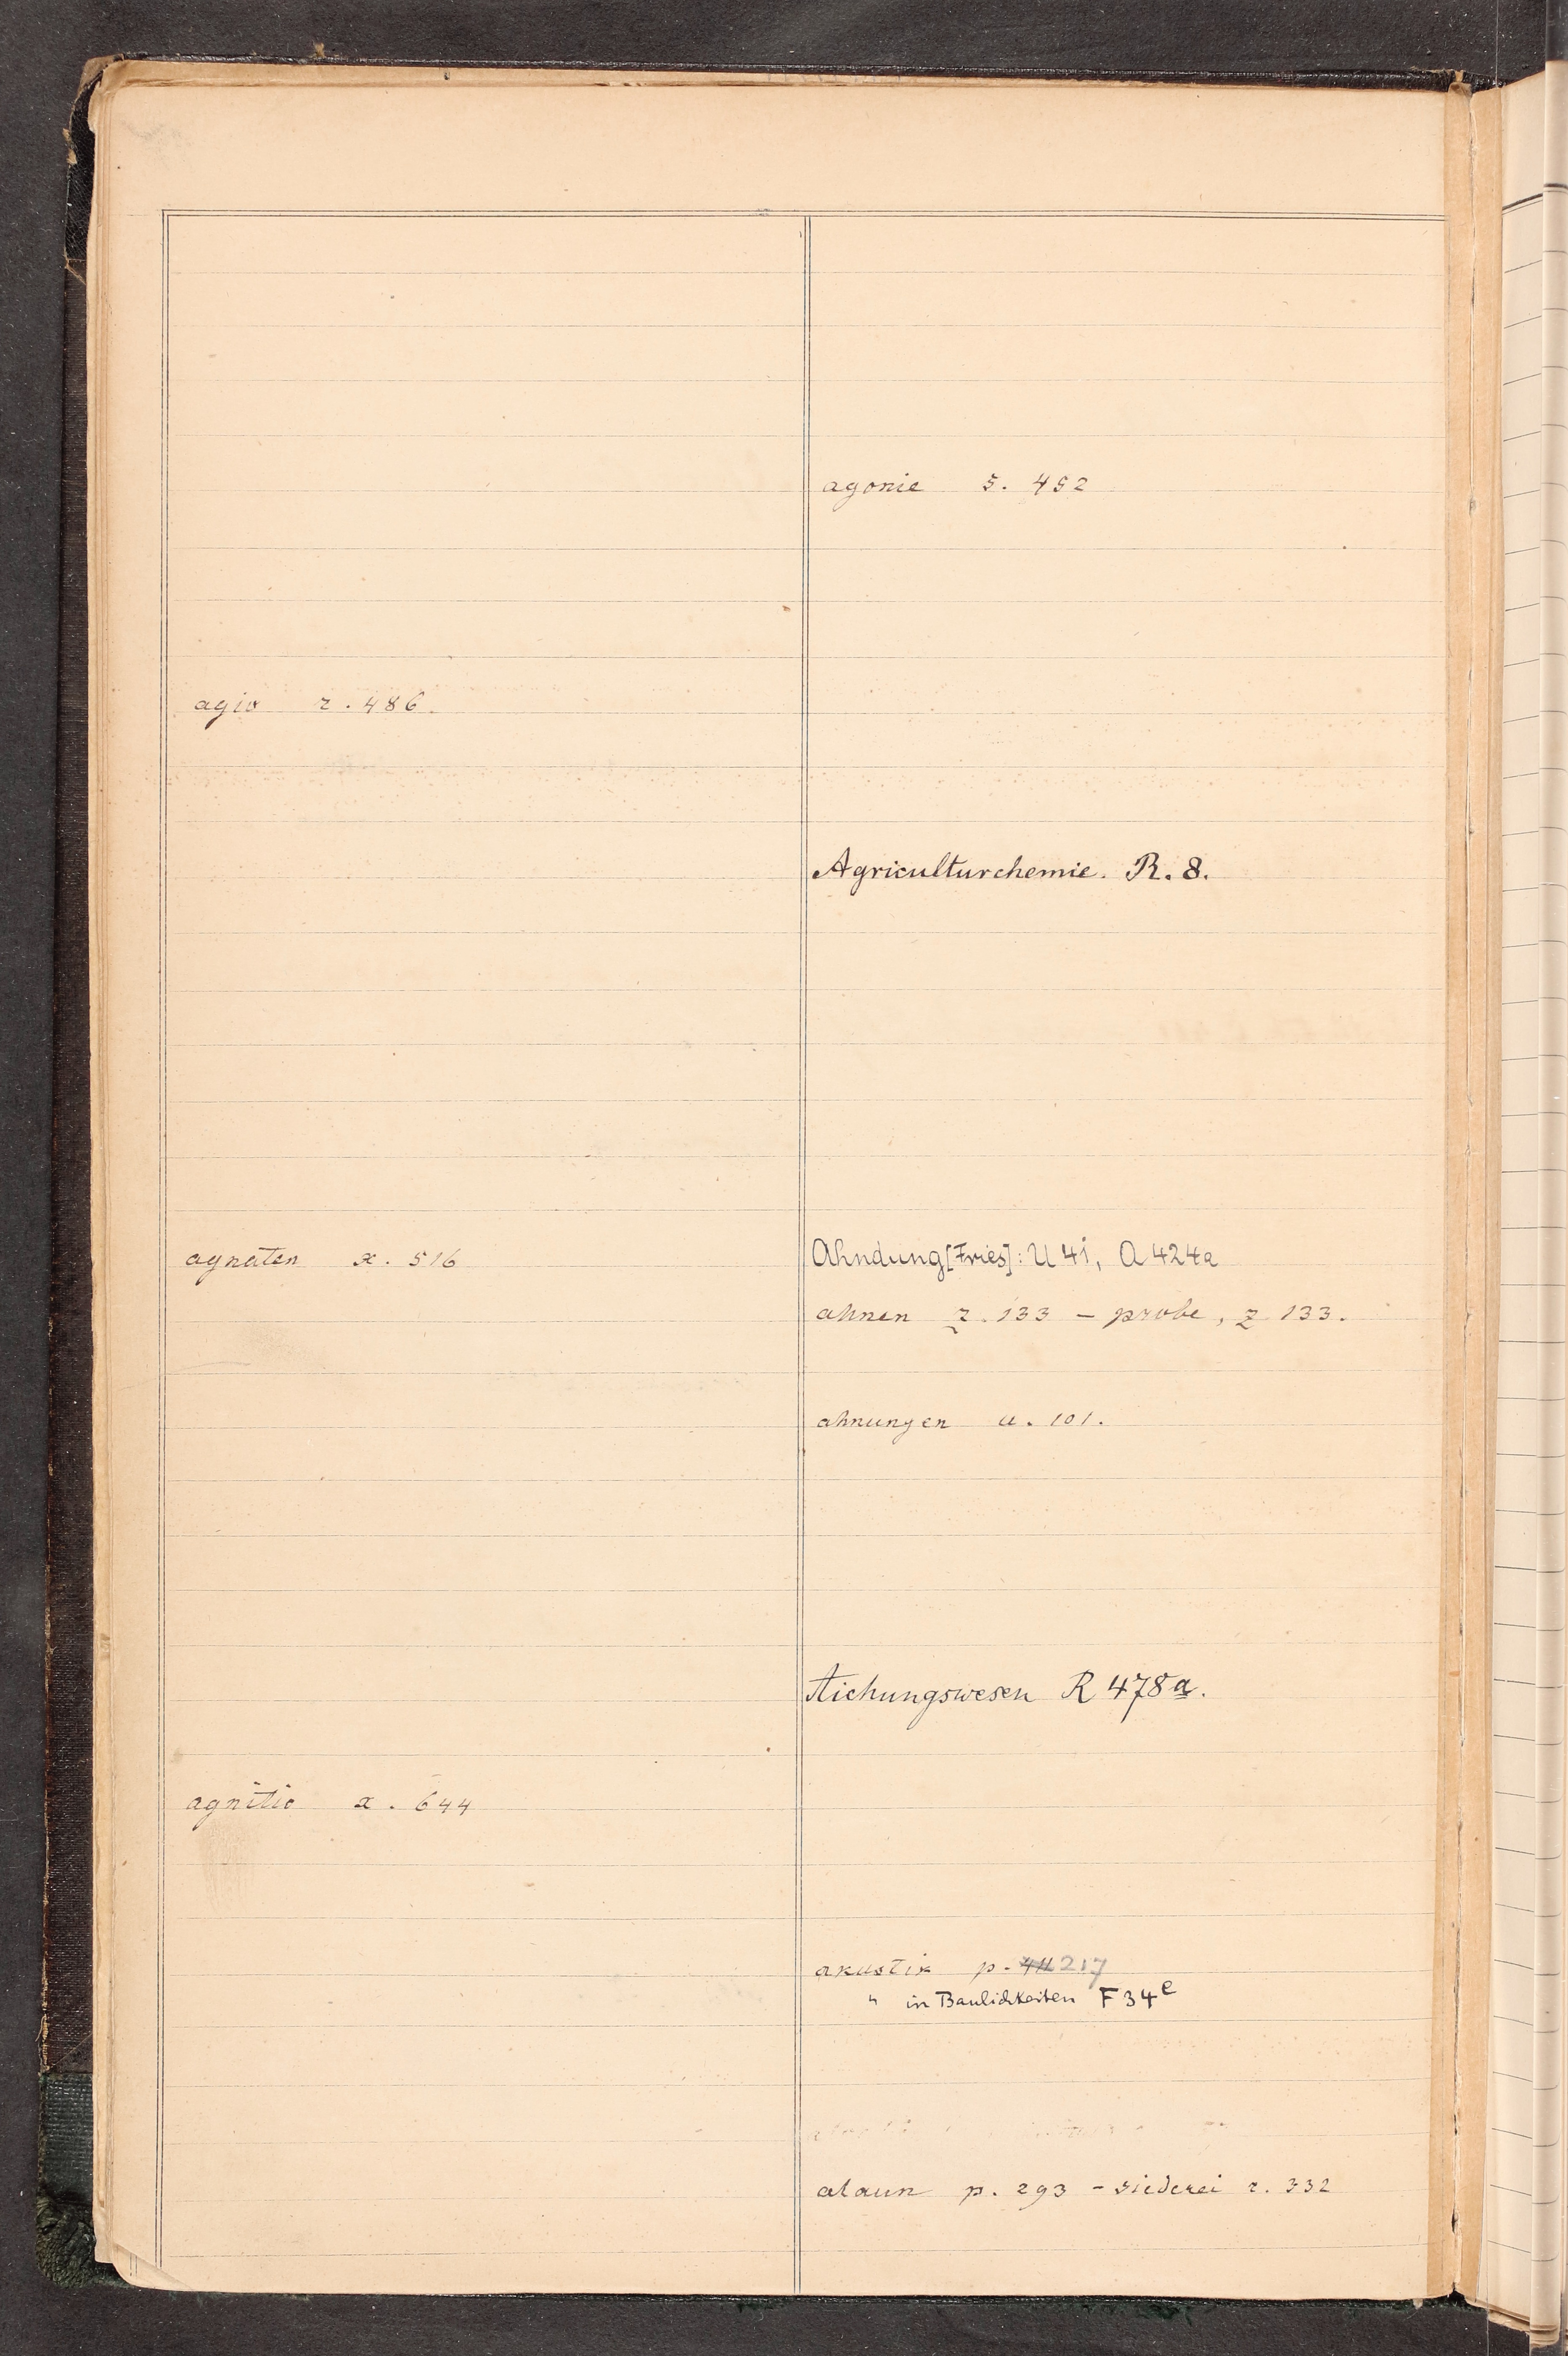 agio r. 486.
agnaten x. 516
agnitio x. 644
agonie s. 452
Agriculturchemie. R. 8.
Ahndung [Fries]: U 41, A 424a
ahnen z. 133 – probe, z 133.
ahnungen u. 101.
Aichungswesen R 478a.
akustik p. 217
" in Baulichkeiten F 34e
alaun p. 293 – siederei r. 332